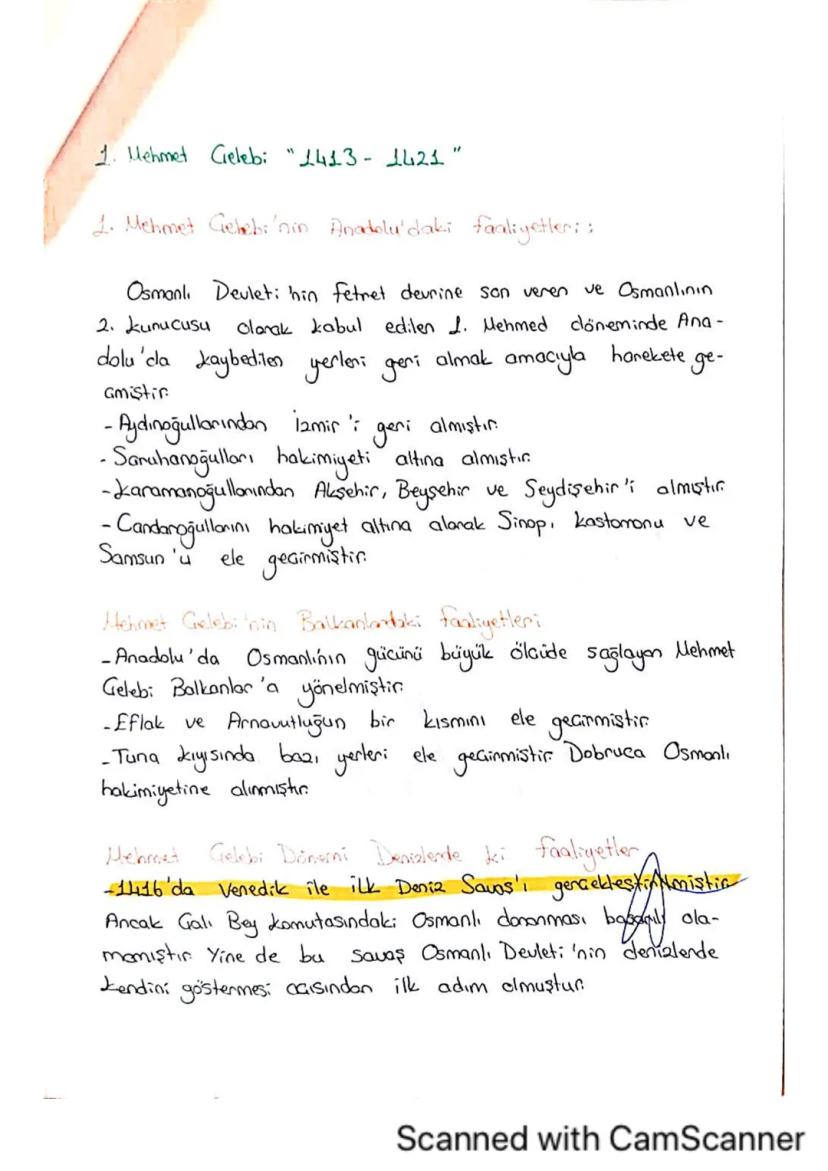 1. Mehmet Çelebi "1413 - 1421"
1. Mehmet Çelebi'nin Anadolu'daki faaliyetleri:
Osmanlı Devleti'nin fetret devrine son veren ve Osmanlının
2. kurucusu olarak kabul edilen 1. Mehmed döneminde Ana-
dolu'da kaybedilen yerleri geri almak amacıyla harekete ge-
çmiştir.
- Aydınoğullarından İzmir'i geri almıştır.
- Saruhanoğulları hakimiyeti altına almıştır.
- Karamanoğullarından Akşehir, Beyşehir ve Seydişehir'i almıştır.
- Candaroğullarını hakimiyet altına alarak Sinop, Kastomonu ve
Samsun'u ele geçirmiştir.
Mehmet Çelebi'nin Balkanlardaki faaliyetleri
- Anadolu'da Osmanlının gücünü büyük ölçüde sağlayan Mehmet
Çelebi Balkanlar'a yönelmiştir.
- Eflak ve Arnavutluğun bir kısmını ele geçirmiştir.
- Tuna kıyısında bazı yerleri ele geçirmiştir. Dobruca Osmanlı
hakimiyetine alınmıştır.
Mehmet Çelebi Dönemi Denizlerde ki faaliyetler
- 1416'da Venedik ile ilk Deniz Savaş'ı gerçekleştirilmiştir.
Ancak Çalı Bey komutasındaki Osmanlı donanması başarılı ola-
mamıştır. Yine de bu savaş Osmanlı Devleti'nin denizlerde
kendini göstermesi açısından ilk adım olmuştur.
Scanned with CamScanner